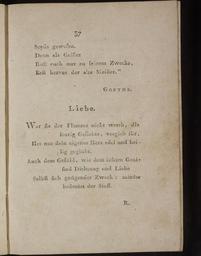 37
Seyds gewesen.
Denn als Geister
Ruft euch nur zu seinem Zwecke,
Erst hervor der alte Meister."
GOETHE.
Liebe.
War sie der Flamme nicht werth, die
ihr,
Hat nur dein eigenes Herz edel und
geglüht.
Auch dem Gefühl, wie dem
sind Dichtung und Liebe
Selbst sich genügender Zweck: minder
bedeutet der Stoff.
R.